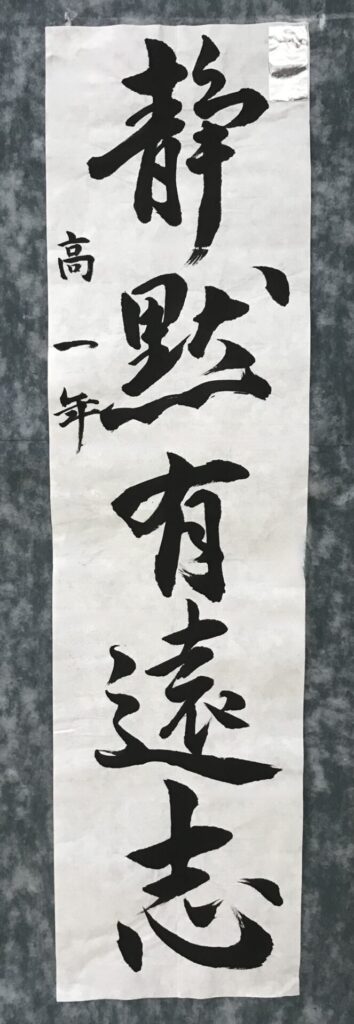 静默有遠志
高一年